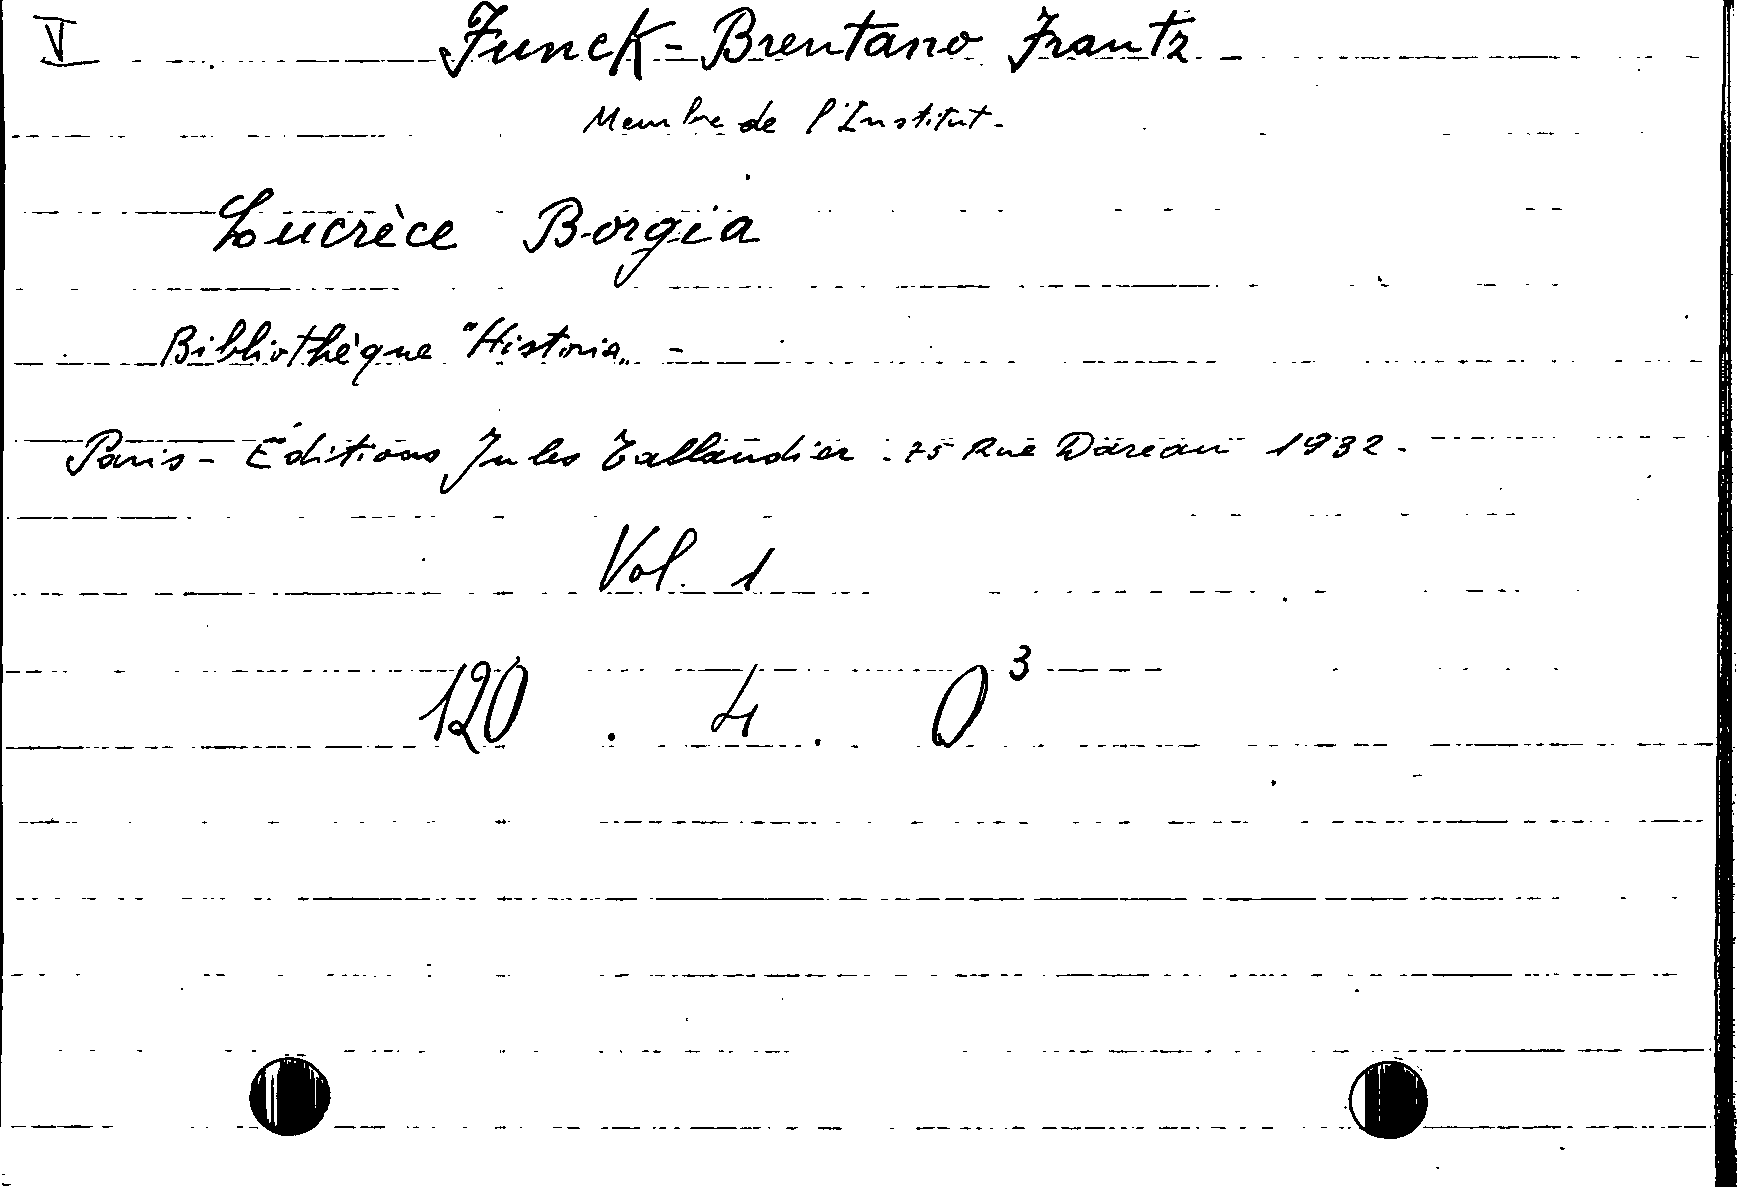 V Funck-Brentano Frantz
Membre de l'Institut.
Lucrèce Borgia
Bibliothèque "Historia" -
Paris - Éditions Jules Tallandier. 75 Rue Dareau 1932.
Vol. 1
120 . 4 . 0³